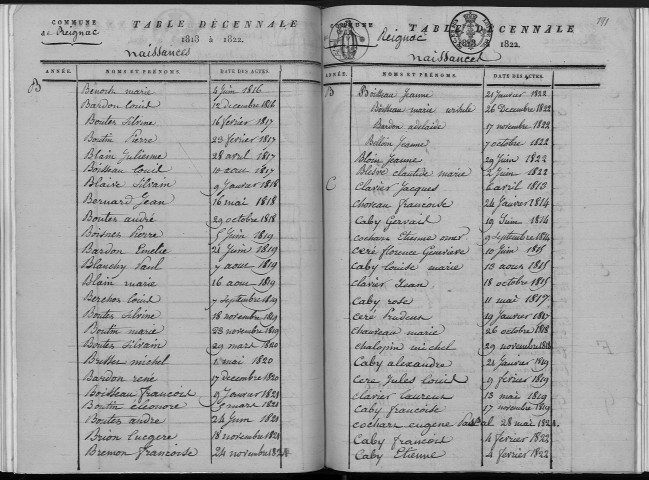 COMMUNE
de Reignac
TABLE DÉCENNALE
1813 à 1822.
Naissances
ANNÉE. NOMS ET PRÉNOMS. DATE DES ACTES.
B
Benoch marie 4 Juin 1816
Bardon Louis 12 decembre 1816
Boutes Silvine 16 fevrier 1817
Boutin Pierre 23 fevrier 1817
Blain Julienne 28 avril 1817
Boisseau Louis 10 aout 1817
Blaive Silvain 9 Janvier 1818
Bernard Jean 16 mai 1818
Boutes andré 29 octobre 1818
Boisnes Pierre 5 Juin 1819
Bardon Emelie 21 Juin 1819
Blanchy Paul 7 aout 1819
Blain marie 16 aout 1819
Berches Louis 7 Septembre 1819
Boutes Silvine 18 novembre 1819
Boutin marie 23 novembre 1819
Boutes Silvain 29 mars 1820
michel mai 1820
Bardon rené 17 decembre 1820
Boisseau francois 9 Janvier 1821
Boutin eleonore 5 mars 1821
Boutes andre 24 Juin 1821
Brion Luegere 18 novembre 1821
Bremon francoise 24 novembre 1821
191
COMMUNE
Reignac
TABLE DÉCENNALE
1813 à 1822.
naissances
ANNÉE. NOMS ET PRÉNOMS. DATE DES ACTES.
B
Boisseau Jeanne 21 Janvier 1822
Boisseau marie 26 Decembre 1822
Bardon adelaide 17 novembre 1822
Belloin Jeanne 7 octobre 1822
Bloin Jeanne 29 Juin 1822
Blesve claudide marie 2 Juin 1822
C
Clavier Jacques 6 avril 1813
Choreau francoise 24 Janvier 1814
Caby Gervais 19 Juin 1814
cochars Etienne omer 9 Septembre 1814
ceré florence Geneviève 10 Juin 1815
Caby Louise marie 13 aout 1815
clavier Jean 18 octobre 1815
Caby rose 11 mai 1817
ceré prudent 19 Janvier 1817
chauveau marie 26 octobre 1818
chalopin michel 29 novembre 1818
Caby alexandre 24 Janvier 1819
Cere Jules Louis 9 fevrier 1819
clavier Laurens 13 mai 1819
Caby francoise 17 novembre 1819
cochars eugene Pascal 28 mai 1821.
Caby francois 4 fevrier 1822
Caby Etienne 4 fevrier 1822